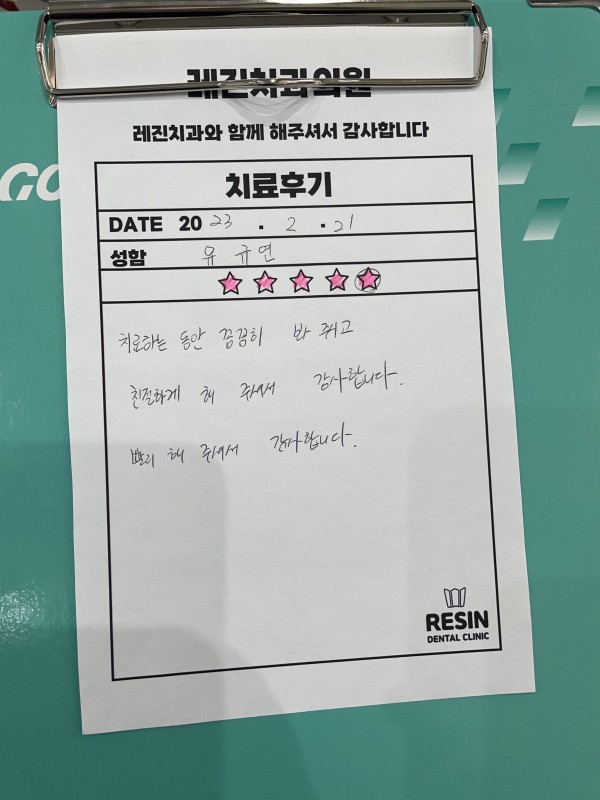 레진치과의원
레진치과와 함께 해주셔서 감사합니다
치료후기
DATE 2023 . 2 . 21
성함 유규연
치료하는 동안 꼼꼼히 봐 주시고
친절하게 해 주셔서 감사합니다.
빨리 해 주셔서 감사합니다.
RESIN
DENTAL CLINIC